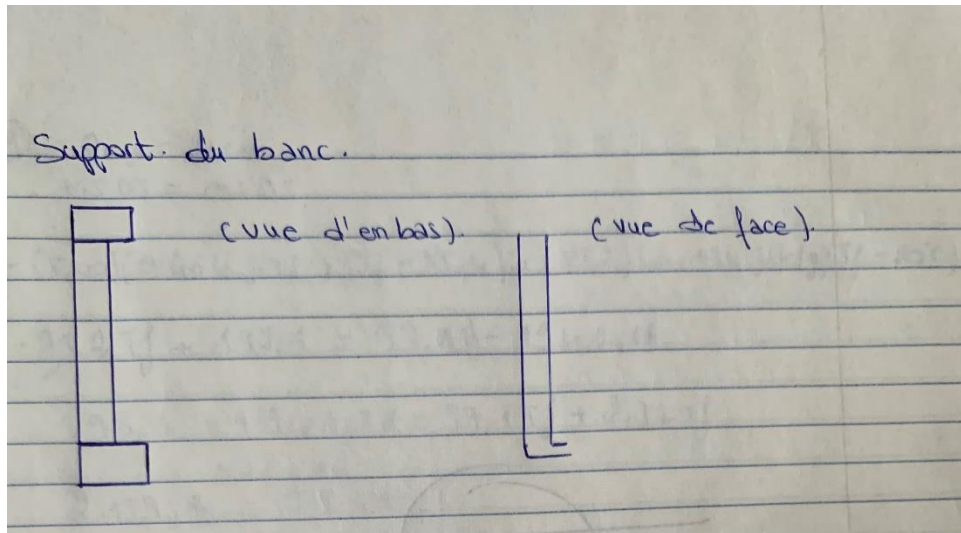 Support. du banc.
(vue d'en bas).
(vue de face).